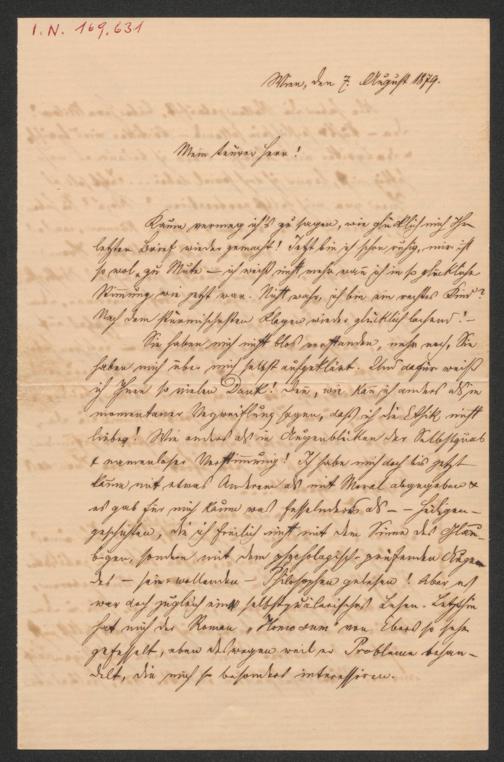 I.N. 169.631
Wien, den 7. August 1879.
Mein teurer Herr!
Kaum vermag ich's zu sagen, wie glücklich mich Ihr
letzter Brief wieder gemacht! Jetzt bin ich schon ruhig, mir ist
so wol zu Mute — ich weiß nicht mehr wann ich in so glücklicher
Stimmung wie jetzt war. Nicht wahr, ich bin ein rechtes Kind?
Nach den stürmischesten Klagen wieder glücklich lachend! —
Sie haben mich nicht blos verstanden, mehr noch, Sie
haben mich über mich selbst aufgeklärt. Und dafür weiß
ich Ihnen so vielen Dank! Denn, wie kann ich anders als in
momentaner Verzweiflung sagen, daß ich die Ethik nicht
liebe! Wie anders als in Augenblicken der Selbstqual
& namenloser Verstimmung! Ich habe mich doch bis jetzt
kaum mit etwas Anderem als mit Moral abgegeben &
es gab für mich kaum was Fesselnderes als — Heiligen-
geschichten, die ich freilich nicht mit dem Sinne des Gläu-
bigen, sondern mit dem psychologisch prüfenden Auge
des — sein-wollenden — Philosophen gelesen! Aber es
war doch zugleich ein selbstquälerisches Lesen. Letzthin
hat mich der Roman „Homo sum" von Ebers so sehr
gefesselt, eben deswegen weil er Probleme behan-
delt, die mich so besonders interessiren.